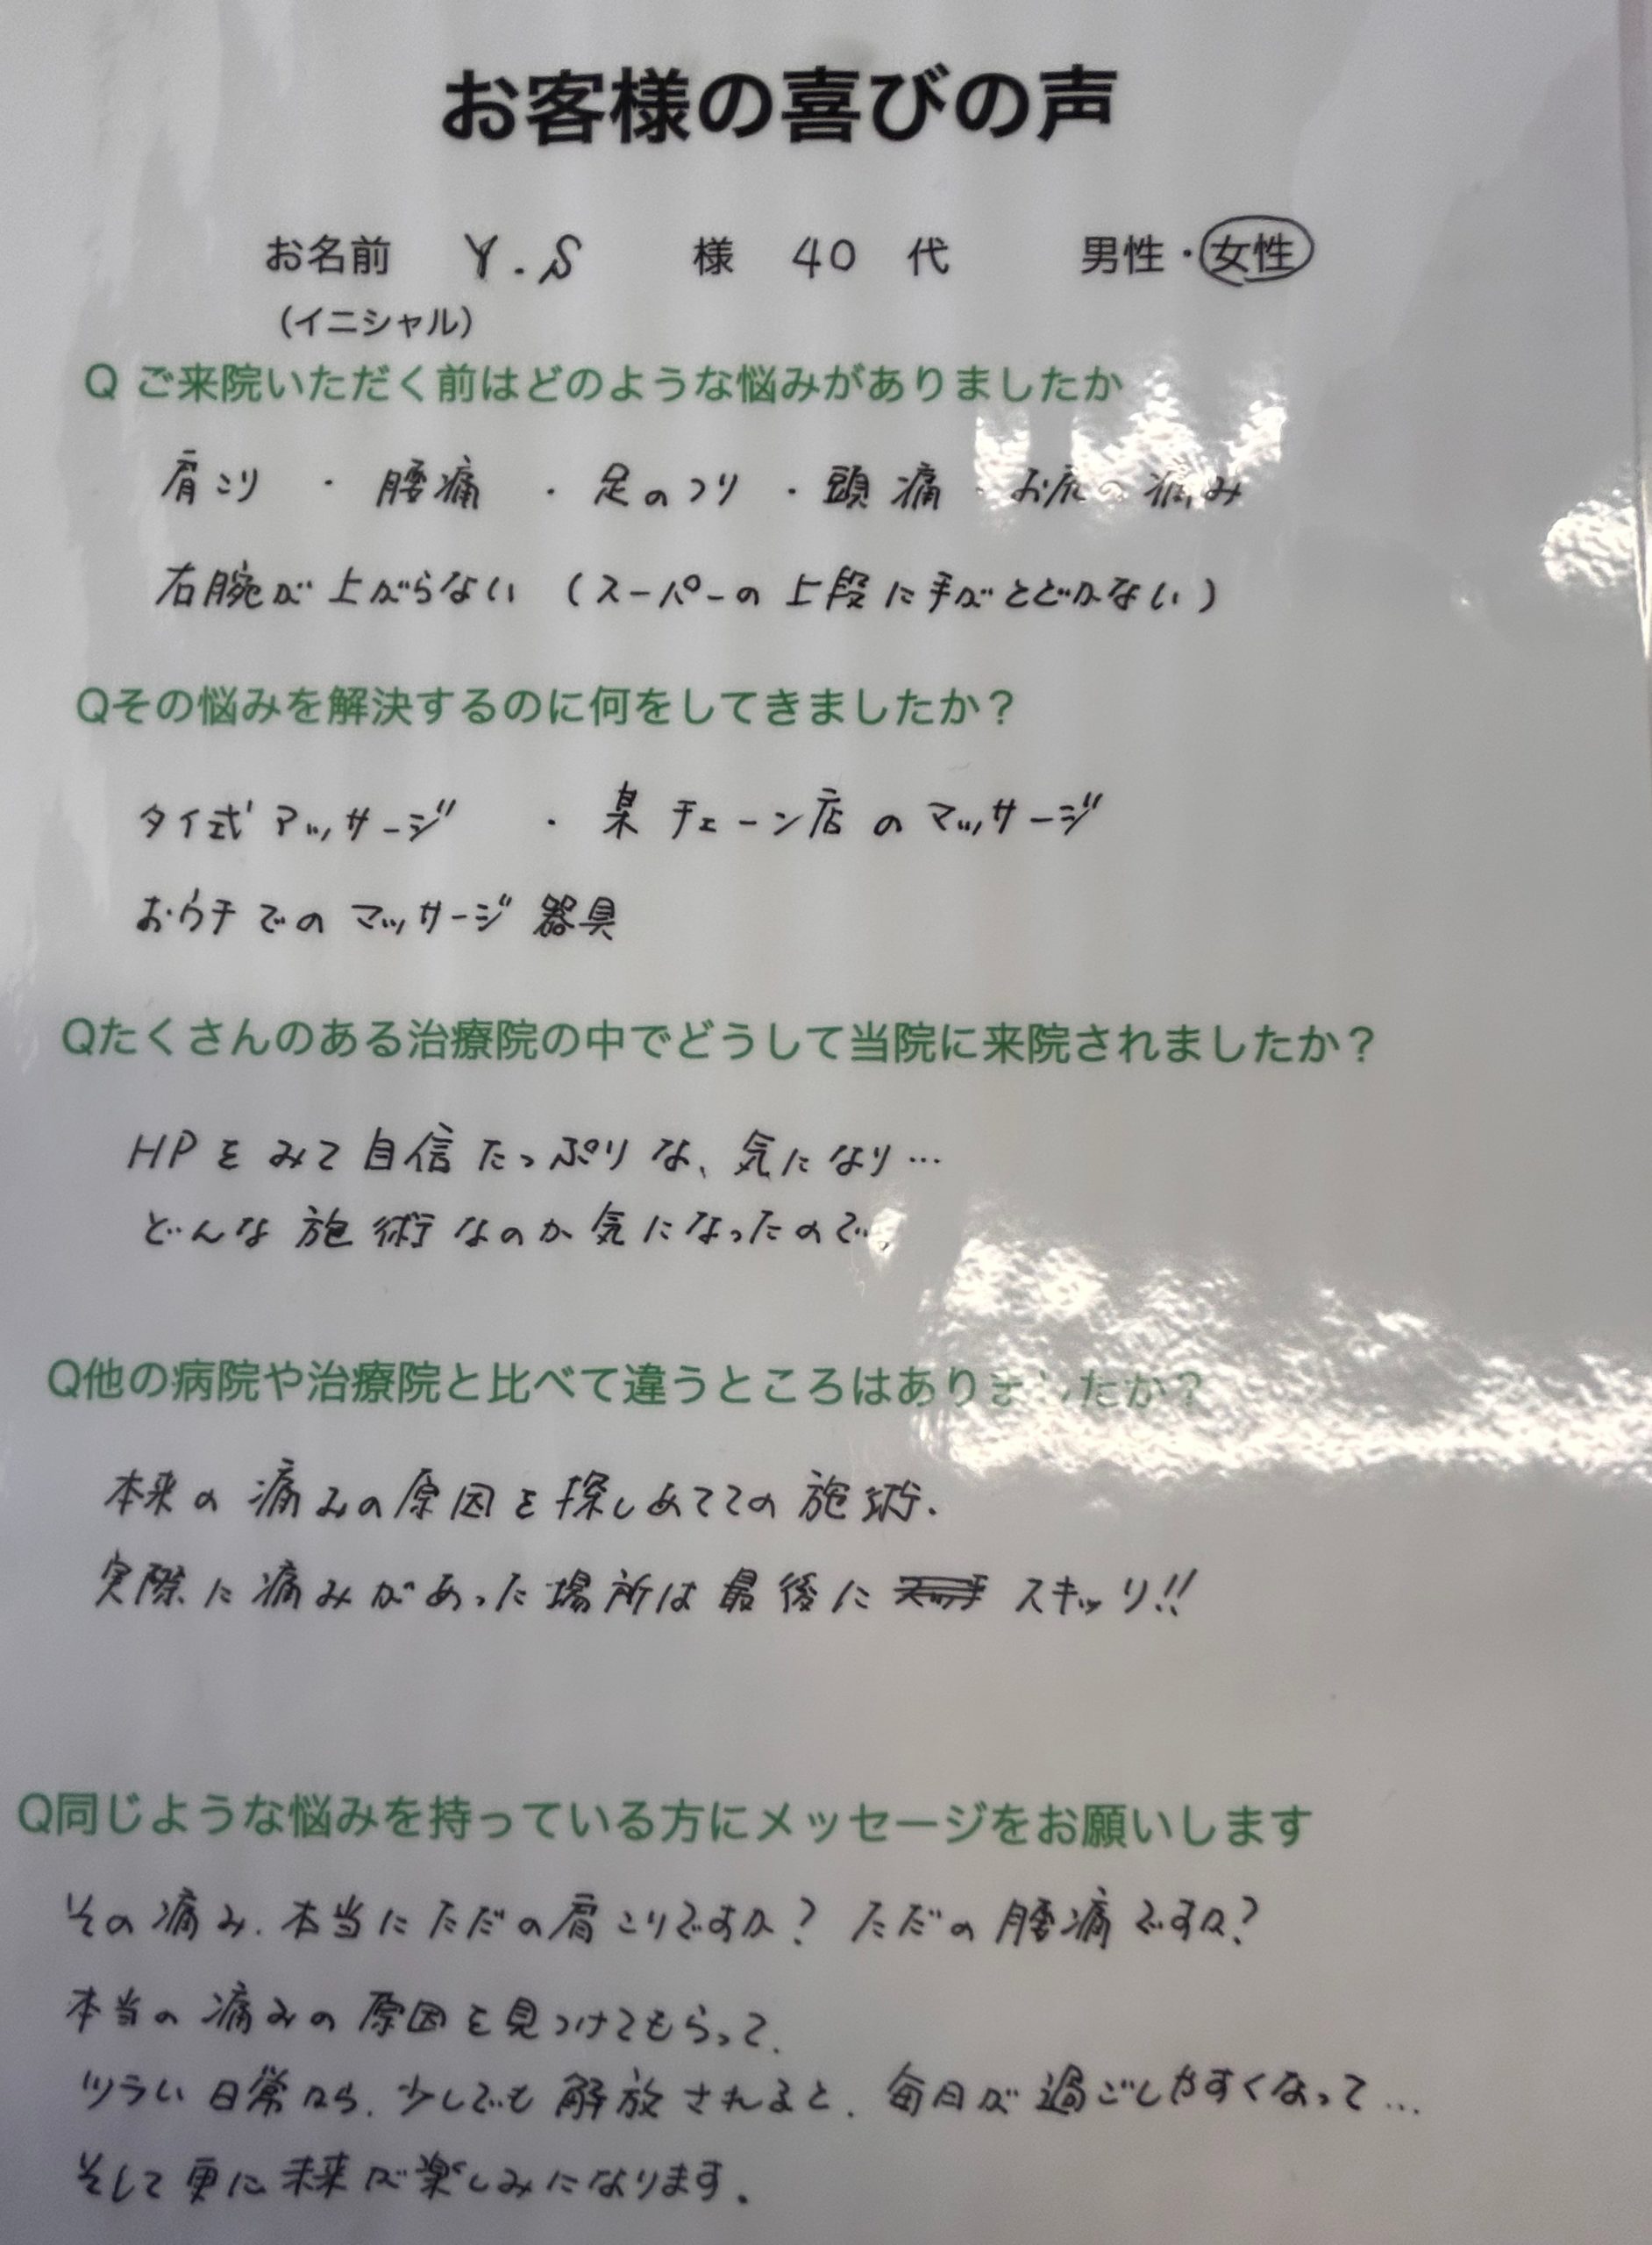 お客様の喜びの声
お名前 Y.S 様 40 代 男性・女性
(イニシャル)
Q ご来院いただく前はどのような悩みがありましたか
肩こり ・ 腰痛 ・ 足のつり ・ 頭痛 ・ お尻の痛み
右腕が上がらない (スーパーの上段に手がとどかない)
Qその悩みを解決するのに何をしてきましたか?
タイ式マッサージ ・ 某チェーン店のマッサージ
おウチでのマッサージ器具
Qたくさんのある治療院の中でどうして当院に来院されましたか?
HPをみて自信たっぷりな、気になり…
どんな施術なのか気になったので。
Q他の病院や治療院と比べて違うところはありましたか?
本来の痛みの原因を探しあてての施術.
実際に痛みがあった場所は最後に スキッリ!!
Q同じような悩みを持っている方にメッセージをお願いします
その痛み、本当にただの肩こりですか? ただの腰痛ですか?
本当の痛みの原因を見つけてもらって、
ツラい日常から、少しでも解放されると、毎日が過ごしやすくなって…
そして更に未来が楽しみになります。